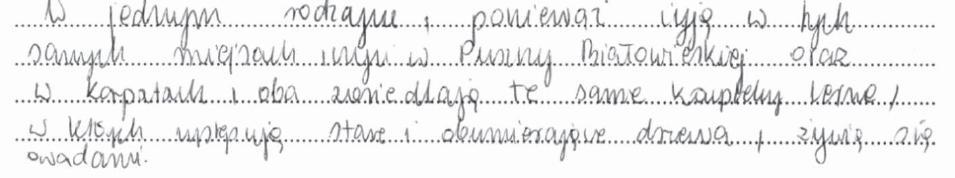 W jednym rodzaju, ponieważ żyją w tych
samych miejscach innyi w Puszczy Białowieskiej oraz
w karpatach i oba zasiedlają te same kompleksy leśne,
w których występują stare i obumierające drzewa, żywią się
owadami.